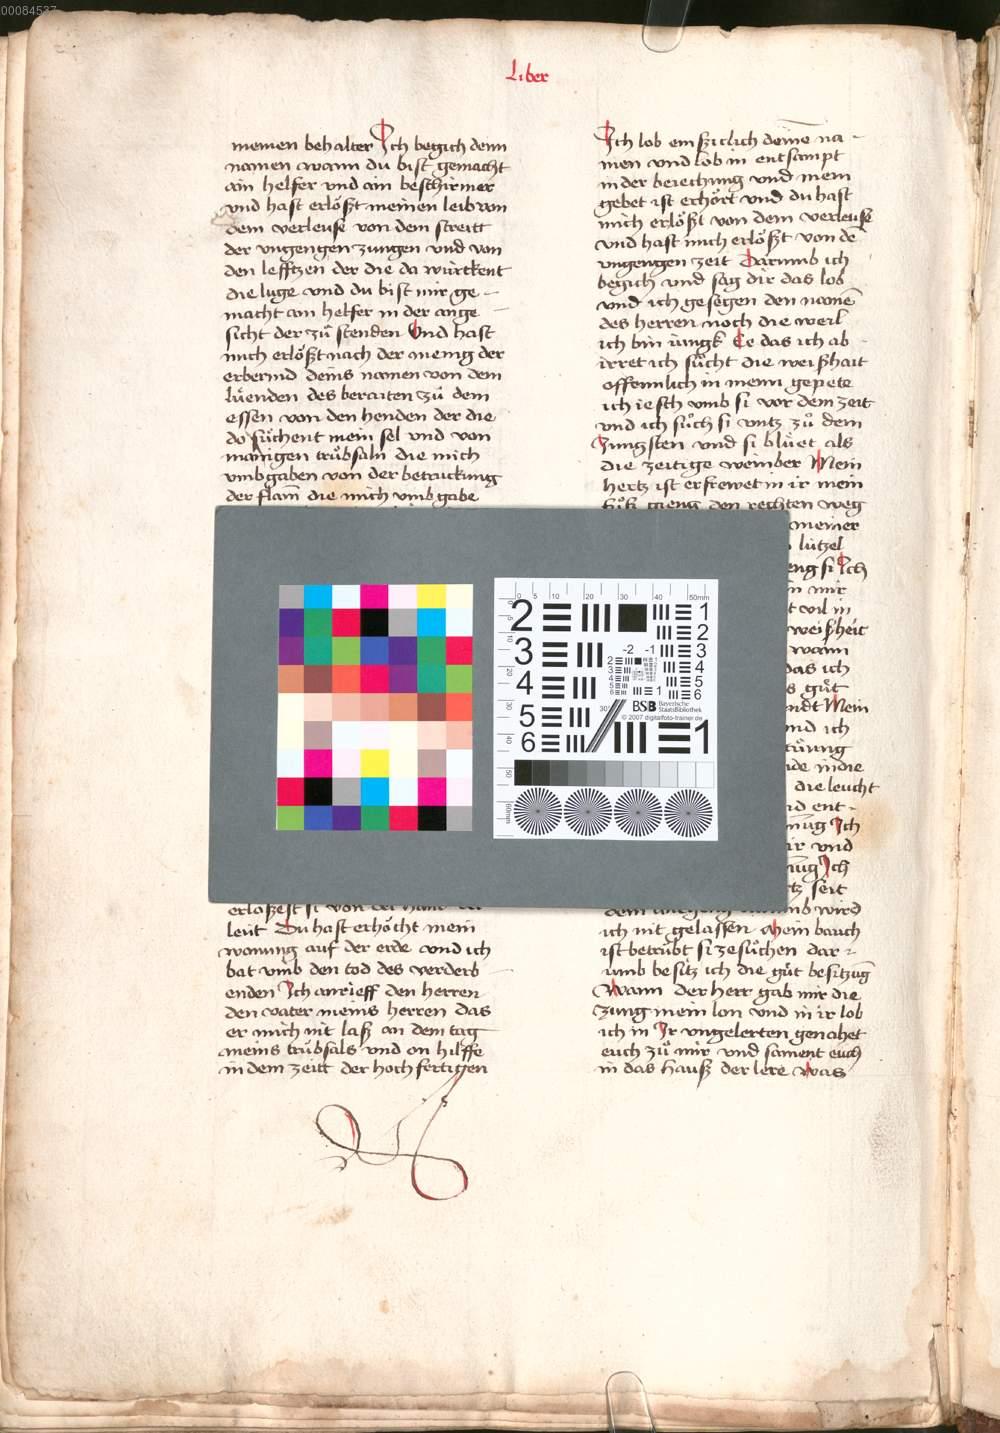 00084537
Liber
meinen behalter Ich begich deim
namen wann du bist gemacht
ain helfer vnd ain beschirmer
vnd hast erlößt meinen leib von
dem verleuse von dem streitt
der vngengen zungen vnd von
den lefftzen der die da würckent
die luge vnd du bist mir ge -
macht ain helfer in der ange
sicht der zů stenden Vnd hast
mich erlößt nach der menig der
erbermd deins namen von dem
lüenden des beraiten zů dem
essen von den henden der die
do sůchent mein sel vnd von
manigen trübsaln die mich
vmbgaben von der betruckung
der flam̄ die mich vmb gabe
leüt Du hast erhöcht mein
wonung auf der erde vnd ich
bat vmb den tod des verderb
enden Ich anrieff den herren
den vater meins herren das
er mich nit laß an dem tag
meins trübsals vnd on hilffe
in dem zeitt der hochfertigen
Ich lob emßiclich deine na -
men vnd lob in entsampt
in der beiechung vnd mein
gebet ist erhört vnd du hast
mich erlößt von dem verleuse
vnd hast mich erlößt von dē
vngengen zeit Darumb ich
begich vnd sag dir das lob
vnd ich gesegen den namē
des herren noch die weil
ich bin iungk Ee das ich ab
irret ich sůcht die weißhait
offennlich in meim gepete
ich iesch vmb si vor dem zeit
vnd ich sůch si vntz zů dem
Jungsten vnd si blüet als
die zeitige weinber Mein
hertz ist erfrewet in ir mein
fůß gieng den rechten weg
meiner
lützel
si Ich
in mir
vil in
weißheit
wann
das ich
güt
Mein
vnd ich
in die
die leucht
ent -
Ich
ir vnd
Ich
seit
wird
ich nit gelassen Mein bauch
ist betrübt si zesůchen dar -
umb besitz ich die güt besitzūg
Wann der herr gab mir die
Zung mein lon vnd in ir lob
ich in Ir vngelerten genahet
euch zů mir vnd sament euch
in das hauß der lere Was
0 5 10 20 30 40 50mm
2 1
2
3 3
4 4
5 5
6 6
-2 -1
BSB Bayerische StaatsBibliothek
© 2007 digitalfoto-trainer.de
1